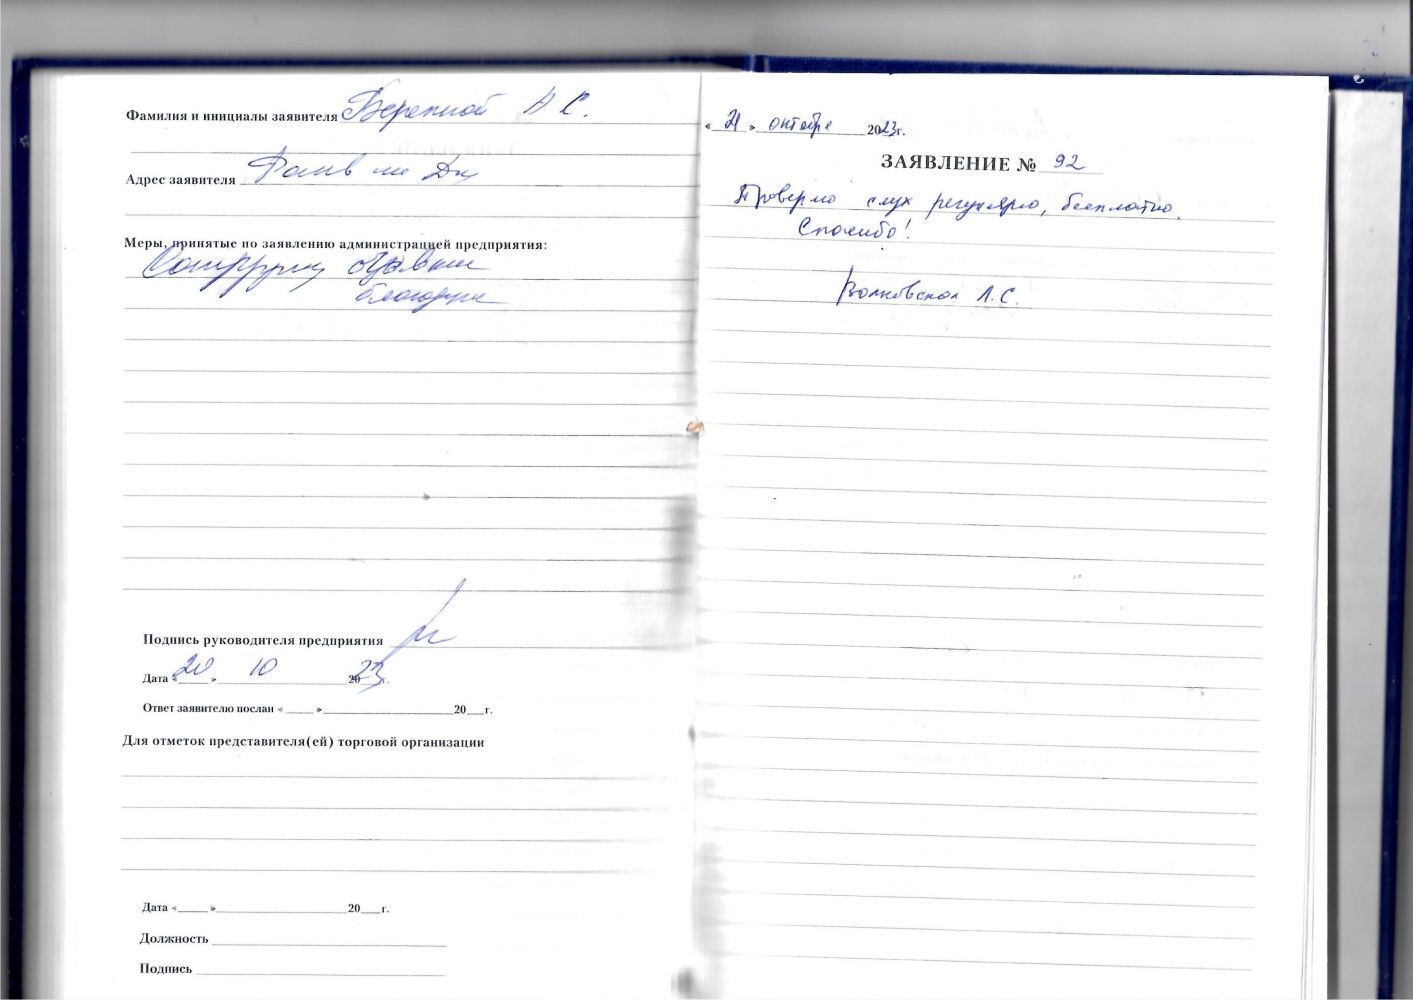 Фамилия и инициалы заявителя Бережной А С.
Адрес заявителя
Меры, принятые по заявлению администрацией предприятия:
Сотруднику объявлена
благодарн
Подпись руководителя предприятия
Дата « 20 » 10 2023 г.
Ответ заявителю послан « » 20 г.
Для отметок представителя(ей) торговой организации
Дата « » 20 г.
Должность
Подпись
« 21 » октября 2023 г.
ЗАЯВЛЕНИЕ № 92
Проверяю слух регулярно, бесплатно.
Спасибо!
Волковская Л.С.